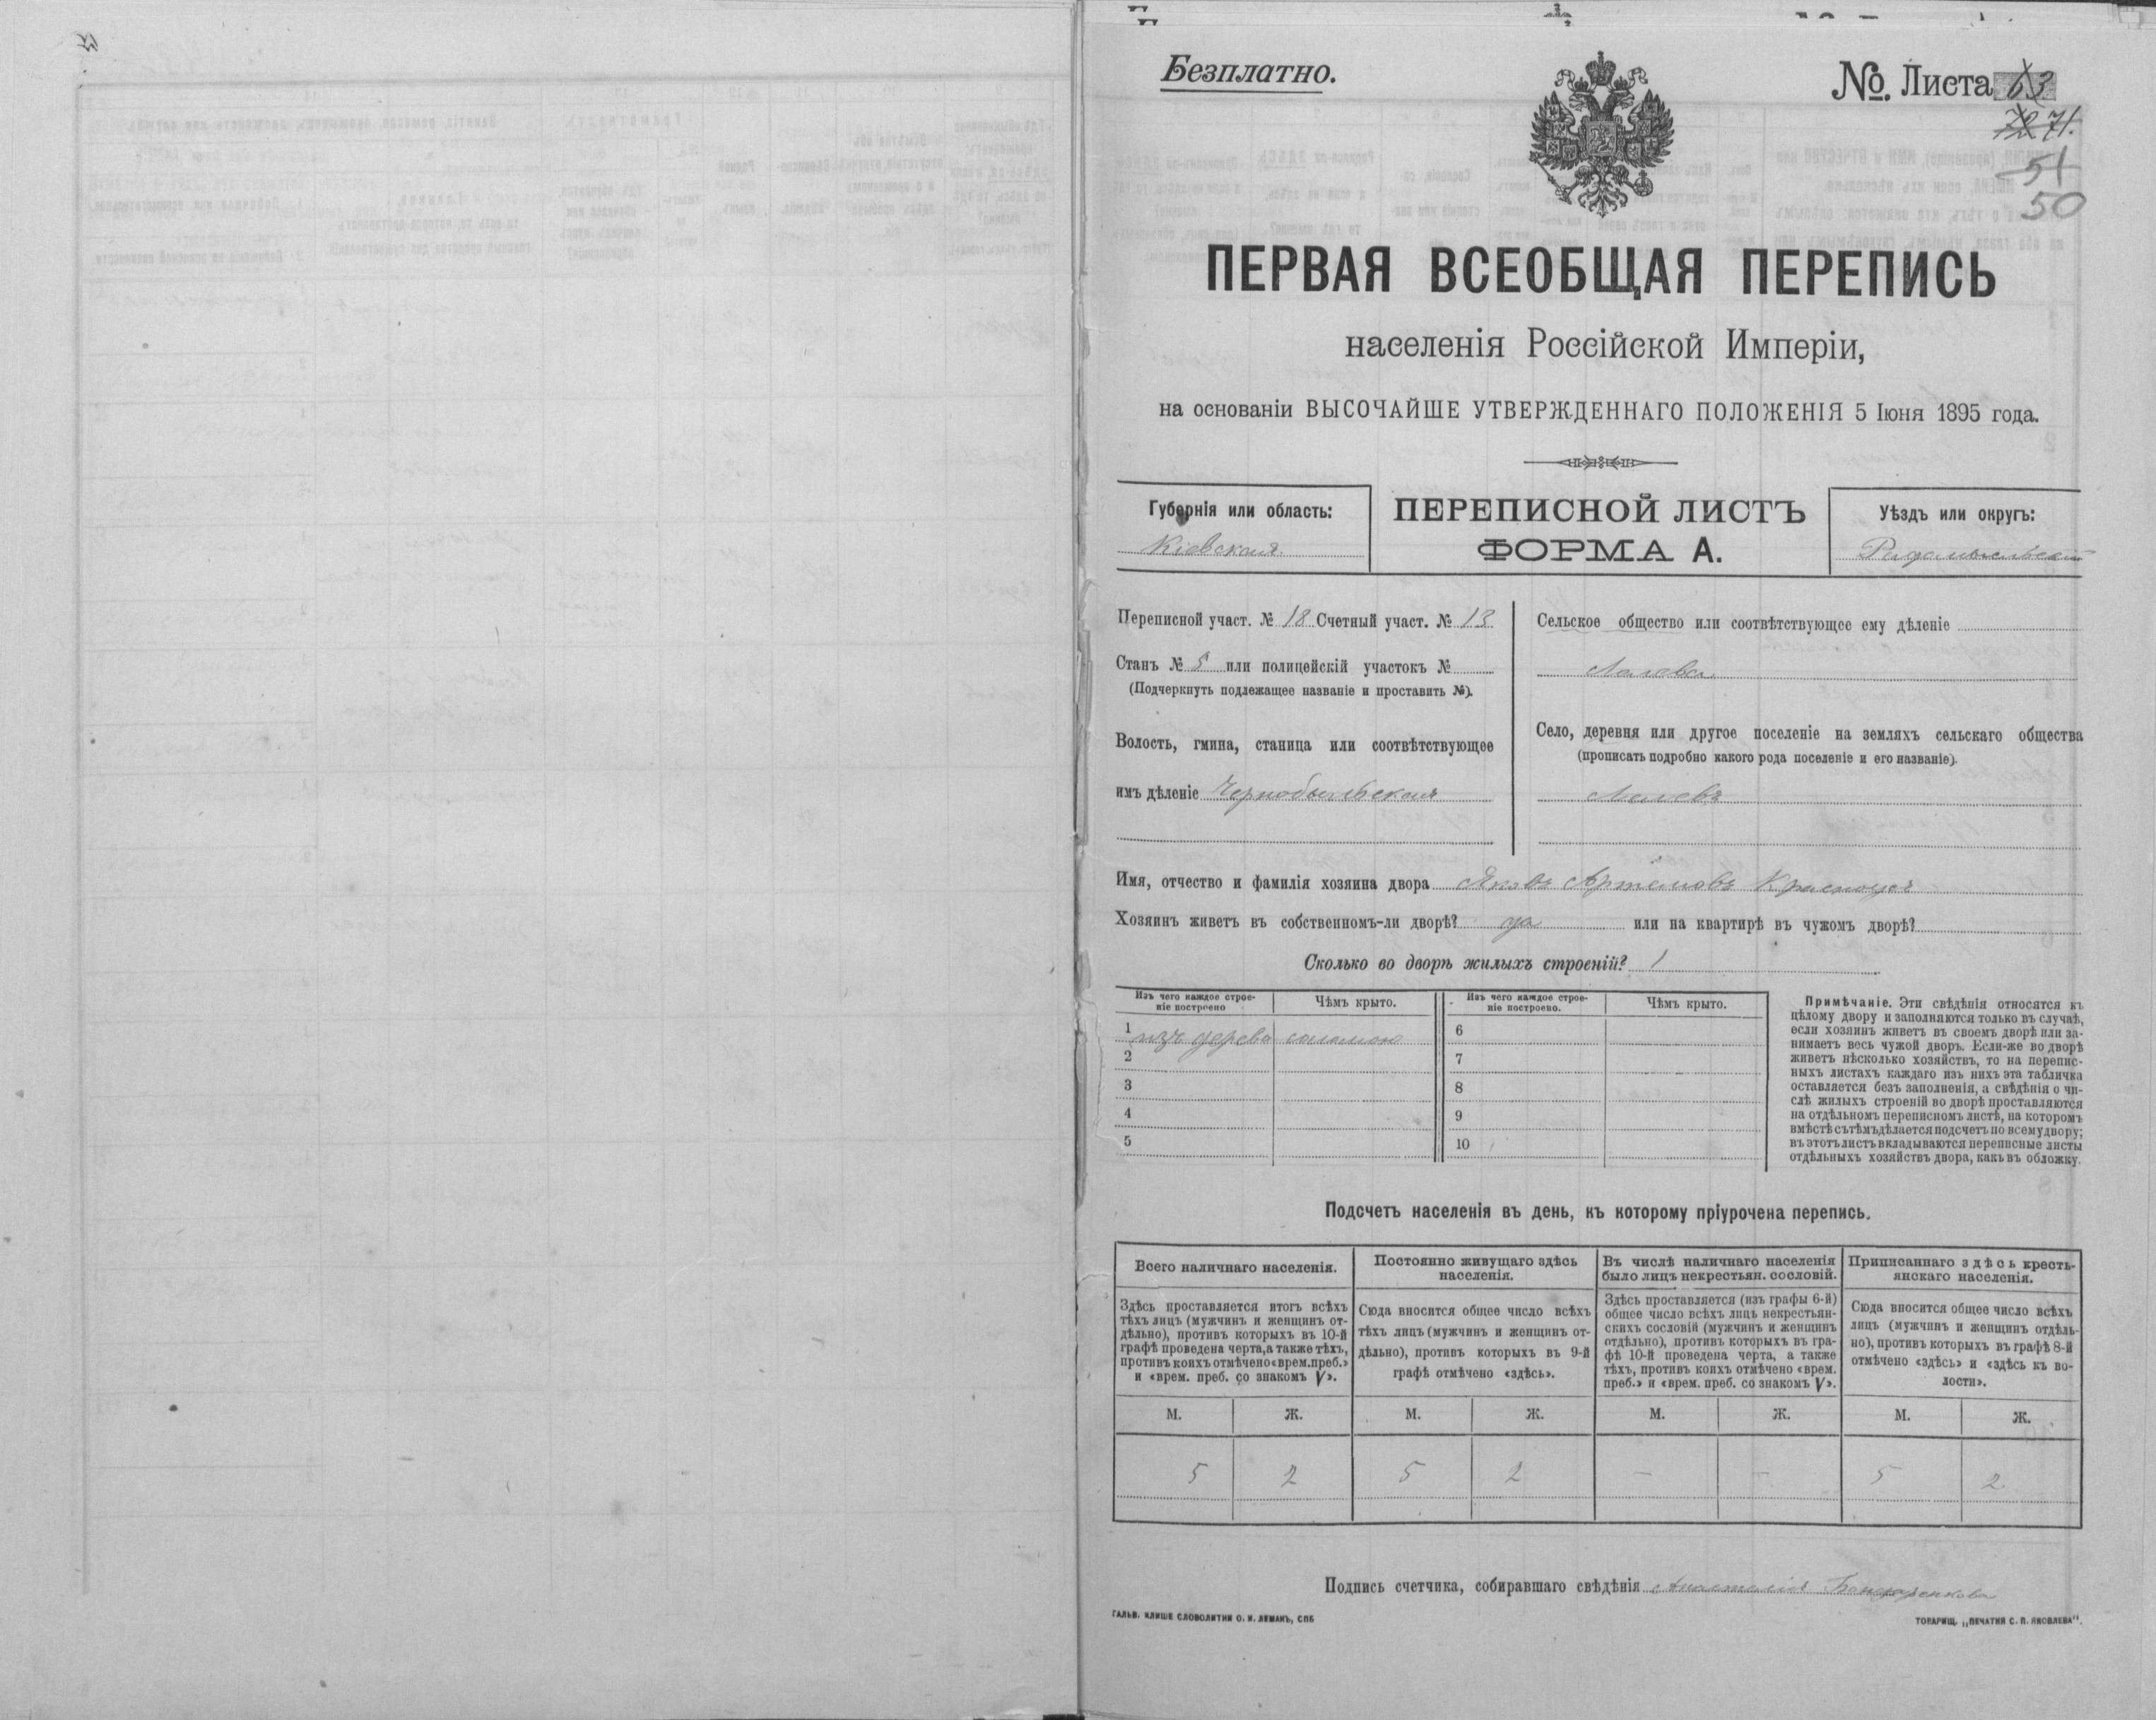 Безплатно.
№. Листа 63
72 71.
51
50
ПЕРВАЯ ВСЕОБЩАЯ ПЕРЕПИСЬ
населенія Россійской Имперіи,
на основаніи ВЫСОЧАЙШЕ УТВЕРЖДЕННАГО ПОЛОЖЕНІЯ 5 Іюня 1895 года.
Губернія или область:
Кіевская.
ПЕРЕПИСНОЙ ЛИСТЪ
ФОРМА А.
Уѣздъ или округъ:
Радомысльскій
Переписной участ. № 18 Счетный участ. № 13
Станъ № 5 или полицейскій участокъ №
(Подчеркнуть подлежащее названіе и проставить №).
Волость, гмина, станица или соотвѣтствующее
имъ дѣленіе Чернобыльская
Сельское общество или соотвѣтствующее ему дѣленіе
Село, деревня или другое поселеніе на земляхъ сельскаго общества
(прописать подробно какого рода поселеніе и его названіе).
Имя, отчество и фамилія хозяина двора Яковъ Артёмовъ
Хозяинъ живетъ въ собственномъ-ли дворѣ? да или на квартирѣ въ чужомъ дворѣ?
Сколько во дворѣ жилыхъ строеній? 1
Изъ чего каждое строе-
ніе построено
Чѣмъ крыто.
Изъ чего каждое строе-
ніе построено.
Чѣмъ крыто.
1 изъ дерева соломою
2
3
4
5
6
7
8
9
10
Примѣчаніе. Эти свѣдѣнія относятся къ
цѣлому двору и заполняются только въ случаѣ,
если хозяинъ живетъ въ своемъ дворѣ или за-
нимаетъ весь чужой дворъ. Если-же во дворѣ
живетъ нѣсколько хозяйствъ, то на перепис-
ныхъ листахъ каждаго изъ нихъ эта табличка
оставляется безъ заполненія, а свѣдѣнія о чи-
слѣ жилыхъ строеній во дворѣ проставляются
на отдѣльномъ переписномъ листѣ, на которомъ
вмѣстѣ съ тѣмъ дѣлается подсчетъ по всему двору;
въ этотъ листъ вкладываются переписные листы
отдѣльныхъ хозяйствъ двора, какъ въ обложку.
Подсчетъ населенія въ день, къ которому пріурочена перепись.
Всего наличнаго населенія.
Здѣсь проставляется итогъ всѣхъ
тѣхъ лицъ (мужчинъ и женщинъ от-
дѣльно), противъ которыхъ въ 10-й
графѣ проведена черта, а также тѣхъ,
противъ коихъ отмѣчено «врем. преб.»
и «врем. преб. со знакомъ V».
Постоянно живущаго здѣсь
населенія.
Сюда вносится общее число всѣхъ
тѣхъ лицъ (мужчинъ и женщинъ от-
дѣльно), противъ которыхъ въ 9-й
графѣ отмѣчено «здѣсь».
Въ числѣ наличнаго населенія
было лицъ некрестьян. сословій.
Здѣсь проставляется (изъ графы 6-й)
общее число всѣхъ лицъ некрестьян-
скихъ сословій (мужчинъ и женщинъ
отдѣльно), противъ которыхъ въ гра-
фѣ 10-й проведена черта, а также
тѣхъ, противъ коихъ отмѣчено «врем.
преб.» и «врем. преб. со знакомъ V».
Приписаннаго здѣсь кресть-
янскаго населенія.
Сюда вносится общее число всѣхъ
лицъ (мужчинъ и женщинъ отдѣль-
но), противъ которыхъ въ графѣ 8-й
отмѣчено «здѣсь» и «здѣсь къ во-
лости».
М. Ж. М. Ж. М. Ж. М. Ж.
5 2 5 2 – – 5 2
Подпись счетчика, собиравшаго свѣдѣнія
ГАЛЬВ. КЛИШЕ СЛОВОЛИТНИ О. И. ЛЕМАНЪ, СПБ
ТОВАРИЩ. „ПЕЧАТНЯ С. П. ЯКОВЛЕВА“.